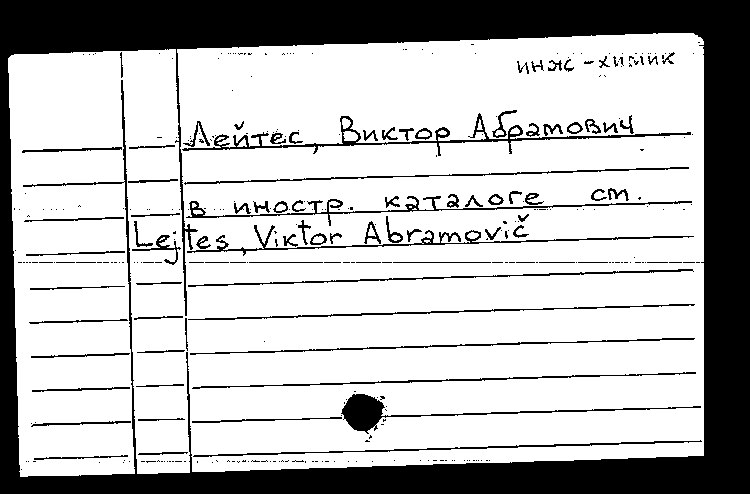 инж-химик
Лейтес, Виктор Абрамович
в иностр. каталоге ст.
Lejtes, Viktor Abramovič